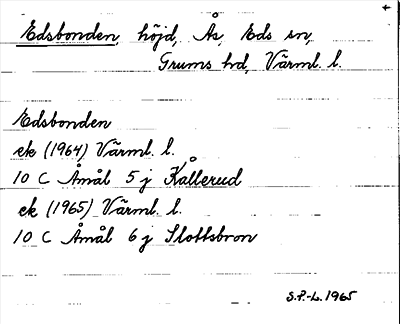 Edsbonden, höjd, Ås, Eds sn,
Grums hd, Värml. l.
Edsbonden
ek (1964) Värml. l.
10 C Åmål 5 j Kållerud
ek (1965) Värml. l.
10 C Åmål 6 j Slottsbron
S.P.-L. 1965